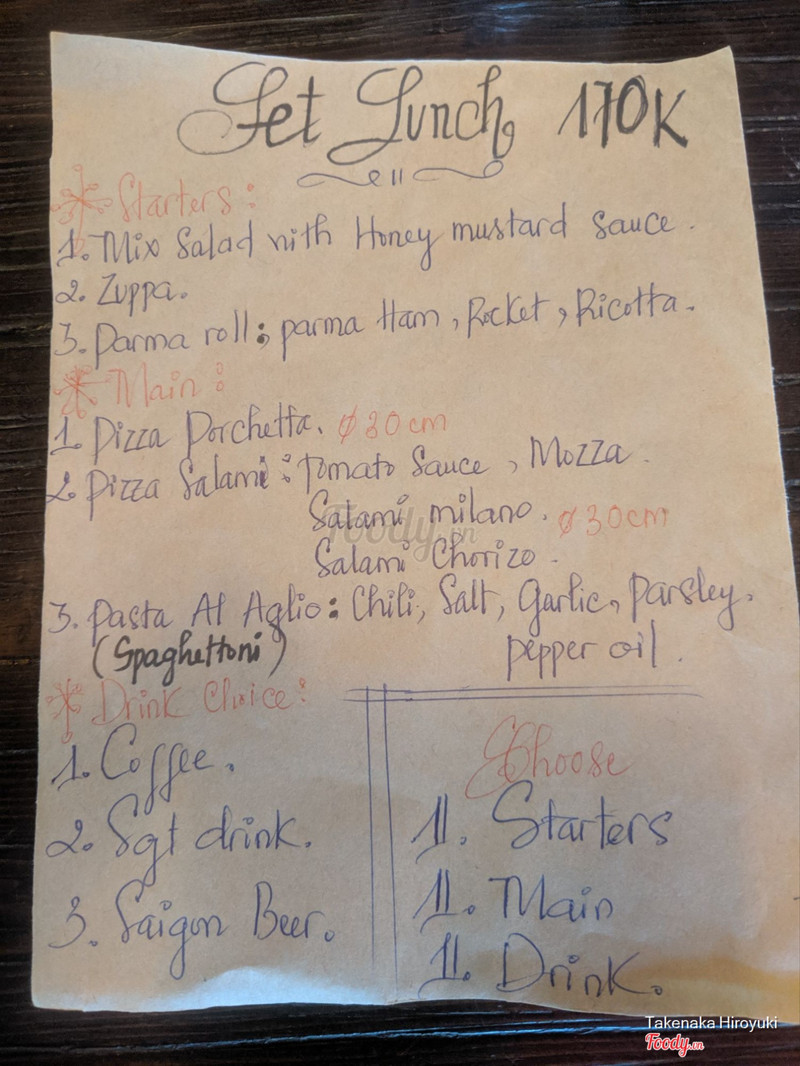 Set Lunch 170K
Starters:
1. Mix Salad with Honey mustard Sauce.
2. Zuppa.
3. Parma roll: parma Ham, Rocket, Ricotta.
Main:
1. Pizza Porchetta. ∅ 30cm
2. Pizza Salami: Tomato Sauce, Mozza.
Salami milano. ∅ 30cm
Salami Chorizo.
3. Pasta Al Aglio: Chili, Salt, Garlic, Parsley,
(Spaghettoni) pepper oil.
Drink Choice:
1. Coffee.
2. Sgt drink.
3. Saigon Beer.
Choose
1. Starters
1. Main
1. Drink.
Foody.vn
Takenaka Hiroyuki
Foody.vn